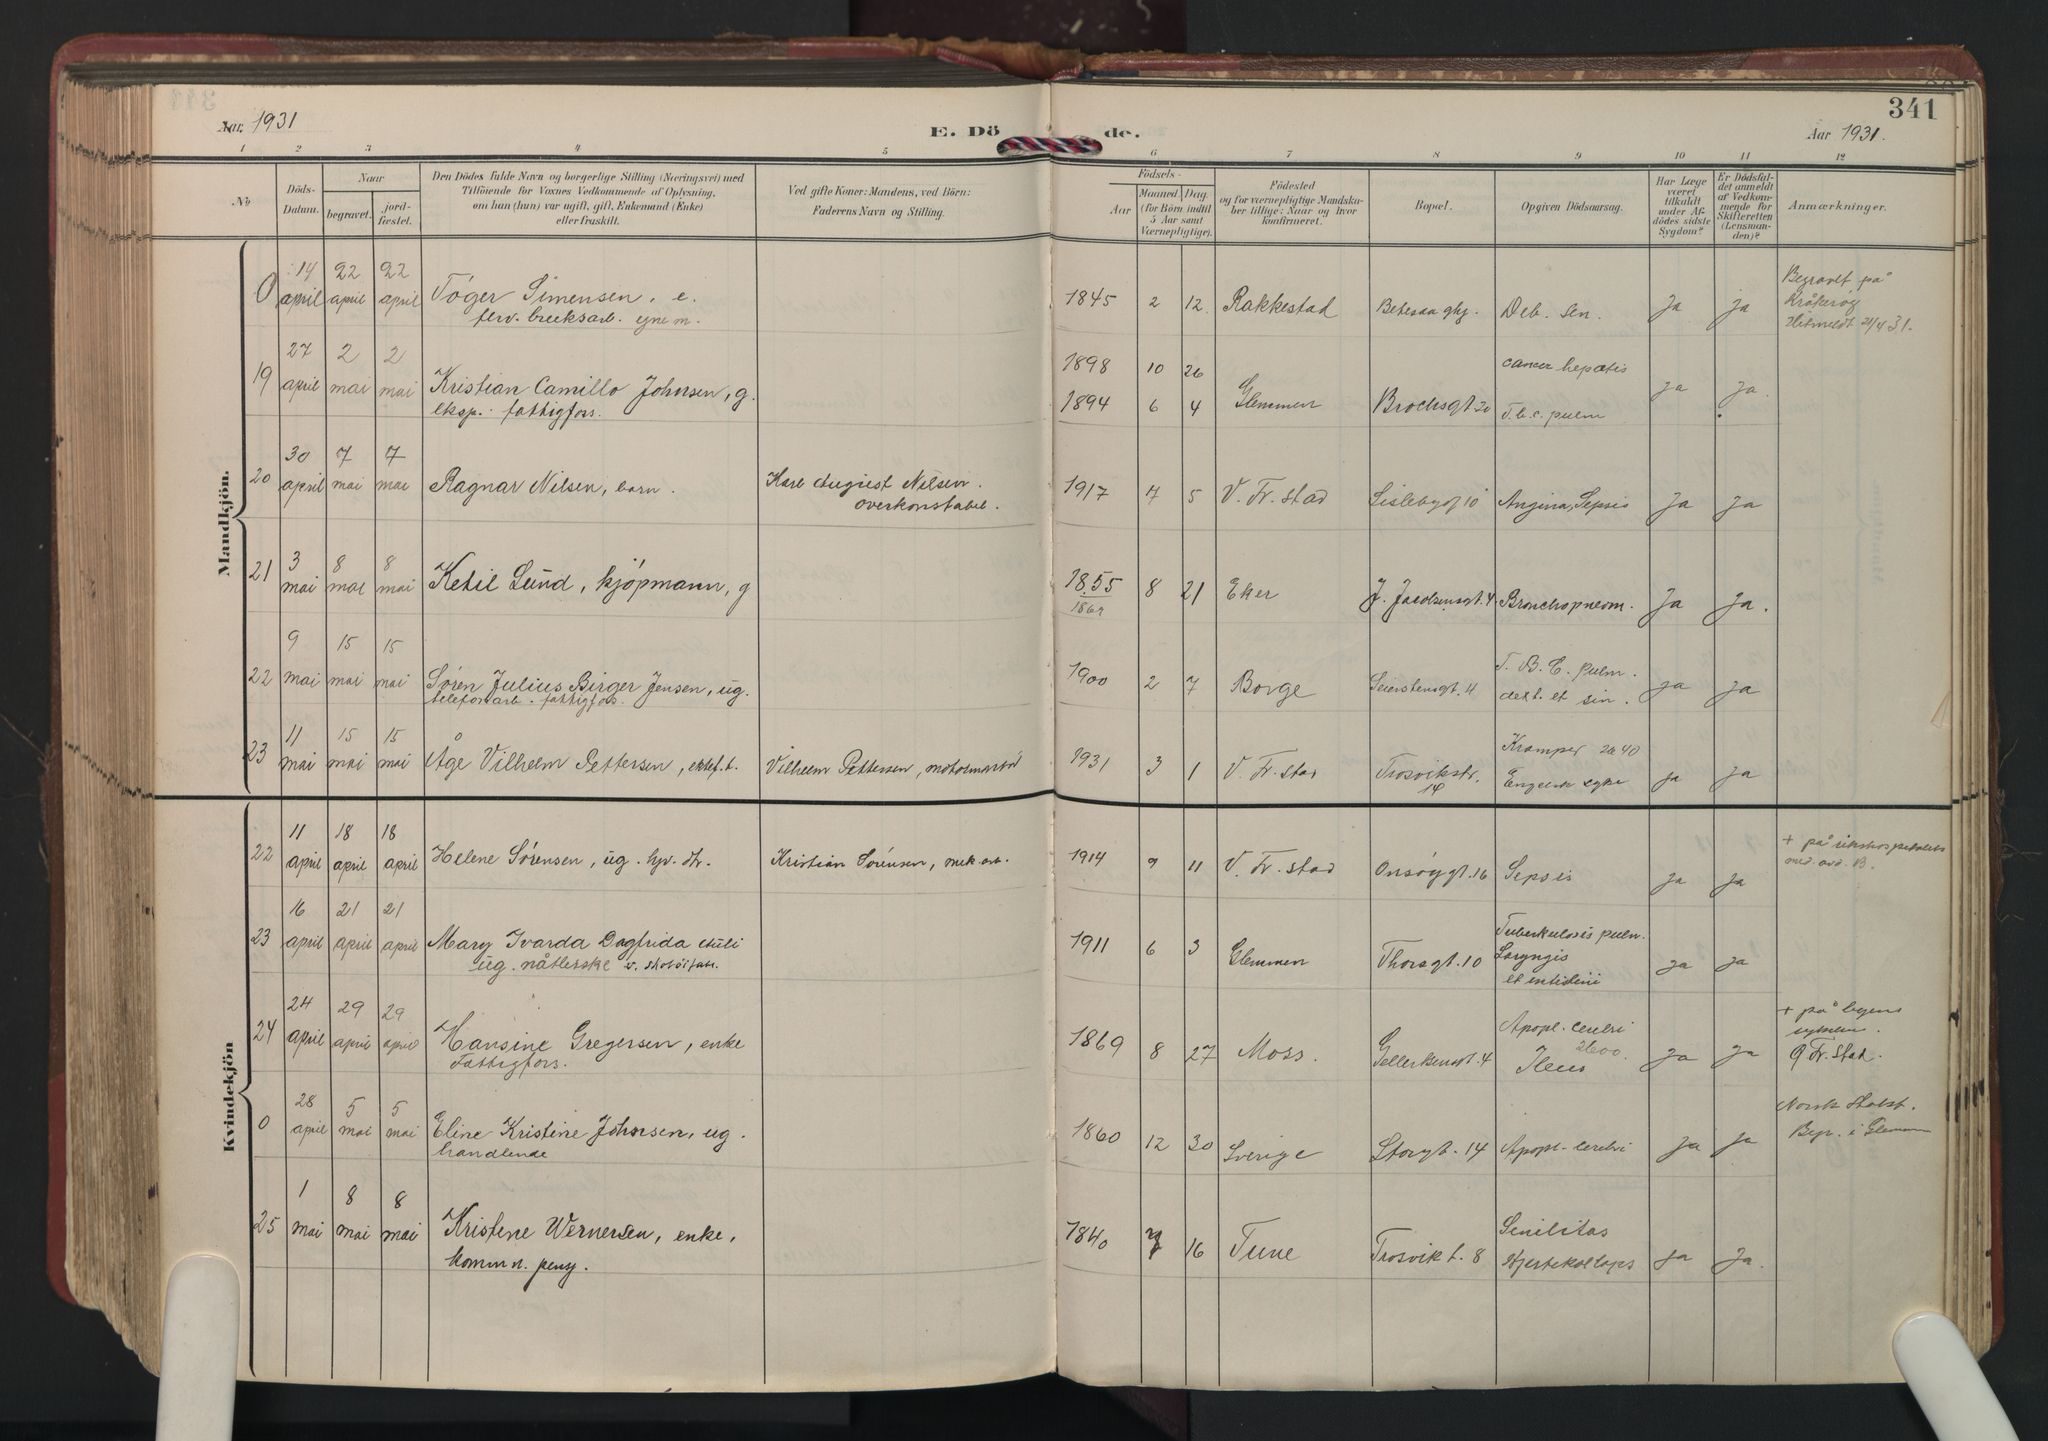 341
Aar 1931
E. Döde.
Aar 1931.
1 2 3 4 5 6 7 8 9 10 11 12
No
Döds-
Datum.
Naar
begravet.
jord-
fæstet.
Den Dödes fulde Navn og borgerlige Stilling (Næringsvei) med
Tilföiende for Voxnes Vedkommende af Oplysning,
om han (hun) var ugift, gift, Enkemand (Enke)
eller fraskilt.
Ved gifte Koner: Mandens, ved Börn:
Faderens Navn og Stilling.
Födsels-
Aar
Maaned. Dag.
(for Börn indtil
5 Aar samt
Værnepligtige).
Födested
og for værnepligtige Mandska-
ber tillige: Naar og hvor
konfirmeret.
Bopæl.
Opgiven Dödsaarsag.
Har Læge
været
tilkaldt
under Af-
dödes sidste
Sygdom?
Er Dödsfal-
det anmeldt
af Vedkom-
mende for
Skifteretten
(Lensman-
den)?
Anmærkninger.
Mandkjön.
0 14 april 22 april 22 april Töger Simensen, e. 1845 2 12 Rakkestad Betesda Deb. sen. Ja ja Begravet på
Kråkerøy
21/4 31.
19 27 april 2 mai 2 mai Kristian Camillo Johnsen, g.
eksp. fattigfors.
1898 10 26 cancer hepatis
1894 6 4 Glemmen Brochsgt 20 T.b.c. pulm ja ja.
20 30 april 7 mai 7 mai Ragnar Nilsen, barn. Karl August Nilsen.
overkonstabel.
1917 7 5 V. Fr.stad Angina, Sepsis Ja Ja
21 3 mai 8 mai 8 mai Ketil Lund, kjöpmann, g 1855 8 21 Eker J. Jacobsensgt. 4 Bronchopneom. Ja Ja.
1869
22 9 mai 15 mai 15 mai Søren Julius Birger Jensen, ug.
telefonarb. fattigfors.
1900 2 7 Borge Seierstensgt. 4 T. B. C. pulm.
dext. et sin. ja Ja
23 11 mai 15 mai 15 mai Åge Vilhelm Pettersen, ektef. f. Vilhelm Pettersen, 1931 3 1 V. Fr.stad Trosvikstr.
14
Kramper
Engelsk syke ja Ja
Kvindekjön
22 11 april 18 april 18 april Helene Sørensen, ug. Kristian Sørensen, mek arb. 1914 9 11 V. Fr.stad Onsøygt. 16 Sepsis ja Ja + på rikshospitalets
med. avd. B.
23 16 april 21 april 21 april Mary Ivarda Dagfrida
ug. nåtlerske v. skotøifabr.
1911 6 3 Glemmen Thorsgt. 10 Tuberkulosis pulm.
Laryngis
ja Ja
24 24 april 29 april 29 april Hansine Gregersen, enke
Fattigfors.
1869 8 27 Moss. Gellertsensgt. 4 Apopl. cerebri
Ileus ja ja + på byens
sykehus.
Fr.stad.
0 28 april 5 mai 5 mai Eline Kristine Johnsen, ug.
handlende
1860 12 30 Sverige Storgt. 14 Apopl. cerebri ja ja Norsk Statsb.
Begr. i Glemmen
25 1 mai 8 mai 8 mai Kristine Wernersen, enke,
komm n. pensj.
1840 16 Tune Trosvik t. 8 Senilitas
Hjertekollaps ja Ja.